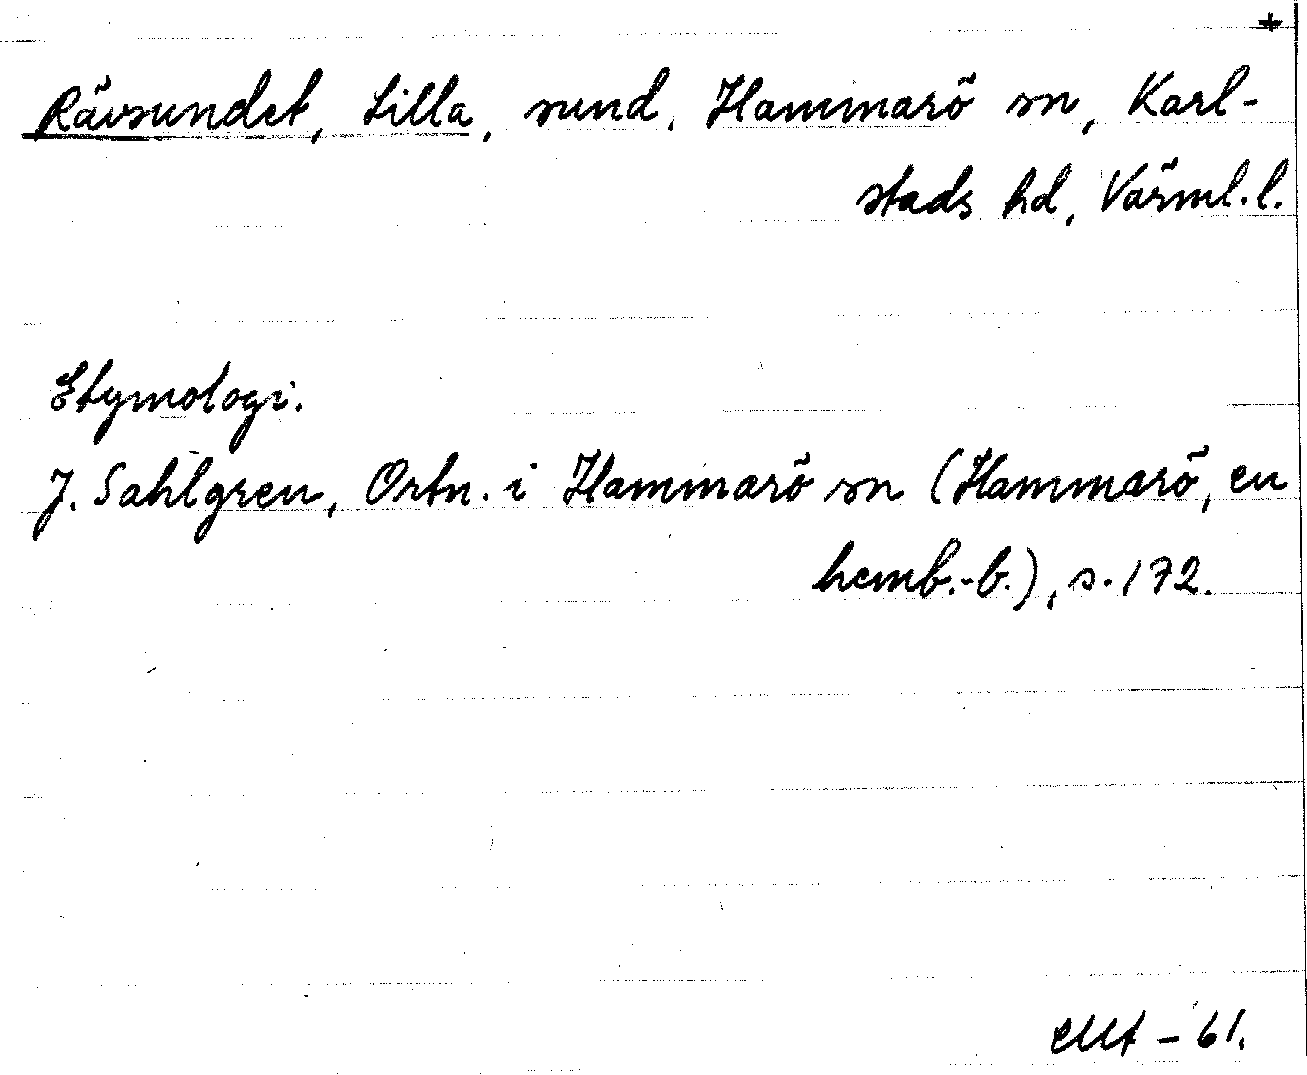 +
Rävsundet, Lilla, sund, Hammarö sn, Karl-
stads hd, Värml. l.
Etymologi.
J. Sahlgren, Ortn. i Hammarö sn (Hammarö, en
hemb.-b.), s. 172.
-61.